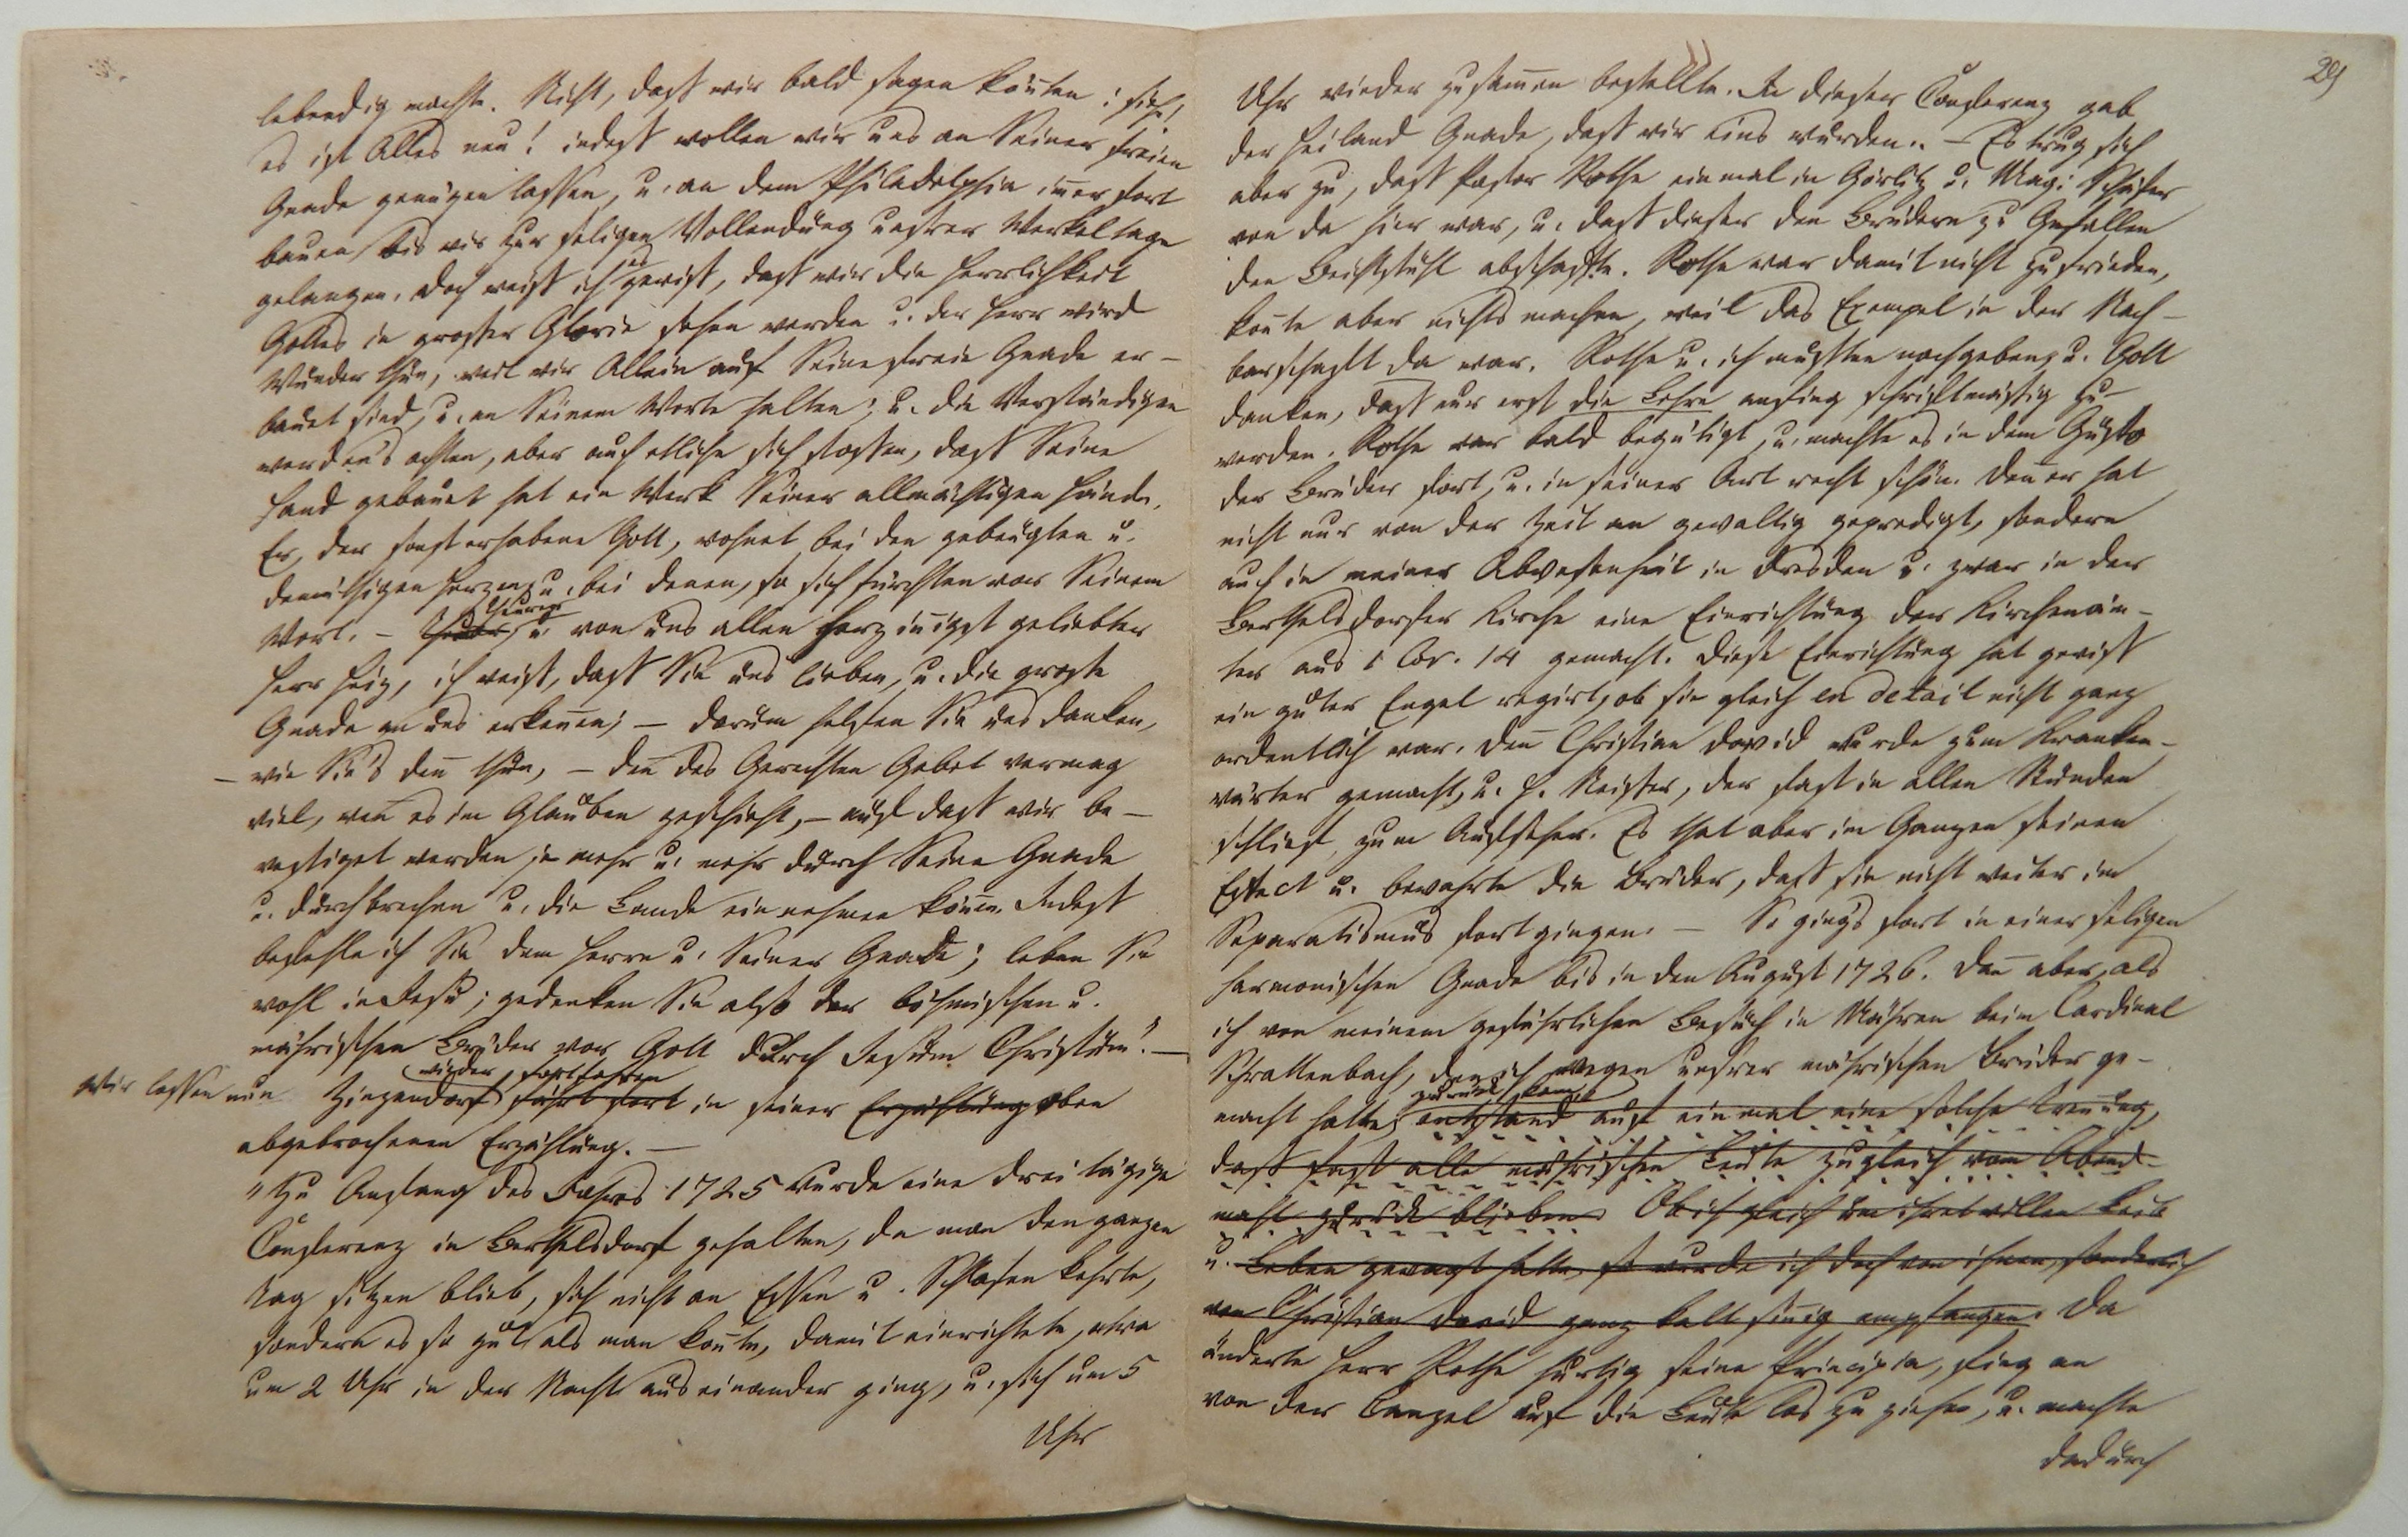 lebendig machte. Nicht, daß wir bald sagen könten: sieh,
es ist Alles neu! indeß wollen wir uns an Seiner freien
Gnade genügen lassen, u. an dem Philadelphia im̄er fort
bauen, bis wir zur seligen Vollendung unsrer Werkeltage
gelangen. Doch weiß ich es gewiß, daß wir die Herrlichkeit
Gottes in großer Glorie sehen werden u. der Herr wird
Wunder thun, weil wir Allein auf Seine freie Gnade er-
bauet sind, u. an Seinem Worte halten; u. die Verständigen
werden's achten, aber auch etliche sich stoßen, daß Seine
Hand gebauet hat ein Werk Seiner allmächtigen Hände.
Er, der sonst erhabene Gott, wohnet bei den gebeugten u.
demüthigen Herzen, u. bei denen, so sich fürchten vor Seinem
Wort. – Theurer, u. von uns allen herzin̄igst geliebter
Herr Heiz, ich weiß, daß Sie uns lieben, u. die große
Gnade an uns erken̄en; – darum helfen Sie uns danken,
– wie Sie's den̄ thun, – den̄ des Gerechten Gebet vermag
viel, wen̄ es im Glauben geschieht, – auf daß wir be-
vestiget werden je mehr u. mehr durch Seine Gnade
u. durchbrechen u. die Lande einnehmen kön̄en. Indeß
befehle ich Sie dem Herrn u. Seiner Gnade; leben Sie
wohl in Jesu; gedenken Sie alß der böhmischen u.
mährischen Brüder vor Gott durch Jesum Christum." –
Wir lassen nun Zinzendorf wieder fortfahren fährt fort in seiner Erzählung oben
abgebrochenen Erzählung. –
"Zu Anfang des Jahres 1725 wurde eine dreitägige
Conferenz in Berthelsdorf gehalten, da man den ganzen
Tag sitzen blieb, sich nicht an Essen u. Schlafen kehrte,
sondern es so gut als man kon̄te, damit einrichtete, etwa
um 2 Uhr in der Nacht aus einander ging, u. sich um 5
Uhr
29
Uhr wieder zusam̄en bestellte. In dieser Conferenz gab
der Heiland Gnade, daß wir eins wurden. – Es trug sich
aber zu, daß Pastor Rothe einmal in Görlitz u. Mag. Schäfer
von da hier war, u. daß dieser den Brüdern zu Gefallen
den Beichtstuhl abschaffte. Rothe war damit nicht zufrieden,
kon̄te aber nichts machen, weil das Exempel in der Nach-
barschaft da war. Rothe u. ich mußten nachgeben, u. Gott
danken, daß nur erst die Lehre anfing schriftmäßig zu
werden. Rothe war bald begütigt, u. machte es in dem Gusto
der Brüder fort, u. in seiner Art recht schön. Den̄ er hat
nicht nur von der Zeit an gewaltig gepredigt, sondern
auch in meiner Abwesenheit in Dresden u. zwar in der
Berthelsdorfer Kirche eine Einrichtung der Kirchenäm-
ter aus 1 Cor. 14 gemacht. Diese Einrichtung hat gewiß
ein guter Engel regirt, ob sie gleich en detail nicht ganz
ordentlich war. Den̄ Christian David wurde zum Kranken-
wärter gemacht, u. F. Neißer, der fast in allen Stunden
schlief, zum Aufseher. Es that aber im Ganzen seinen
Effect u. bewahrte die Brüder, daß sie nicht weiter im
Separatismus fortgingen. – So ging's fort in einer seligen
harmonischen Gnade bis in den August 1726. Den̄ aber, als
ich von meinem gefährlichen Besuch in Mähren beim Cardinal
Schrattenbach, den ich wegen unsrer mährischen Brüder ge-
macht hatte, zurück kam, entstand auf einmal eine solche Tren̄ung,
daß fast alle mährischen Leute zugleich vom Abend-
mahl zurück blieben. Ob ich gleich um ihretwillen Leib
u. Leben gewagt hatte, so wurde ich doch von ihnen, sonderlich
von Christian David ganz kaltsin̄ig empfangen. Da
änderte Herr Rothe hurtig seine Principia, fing an
von der Canzel auf die Leute los zu ziehen, u. machte
dadurch